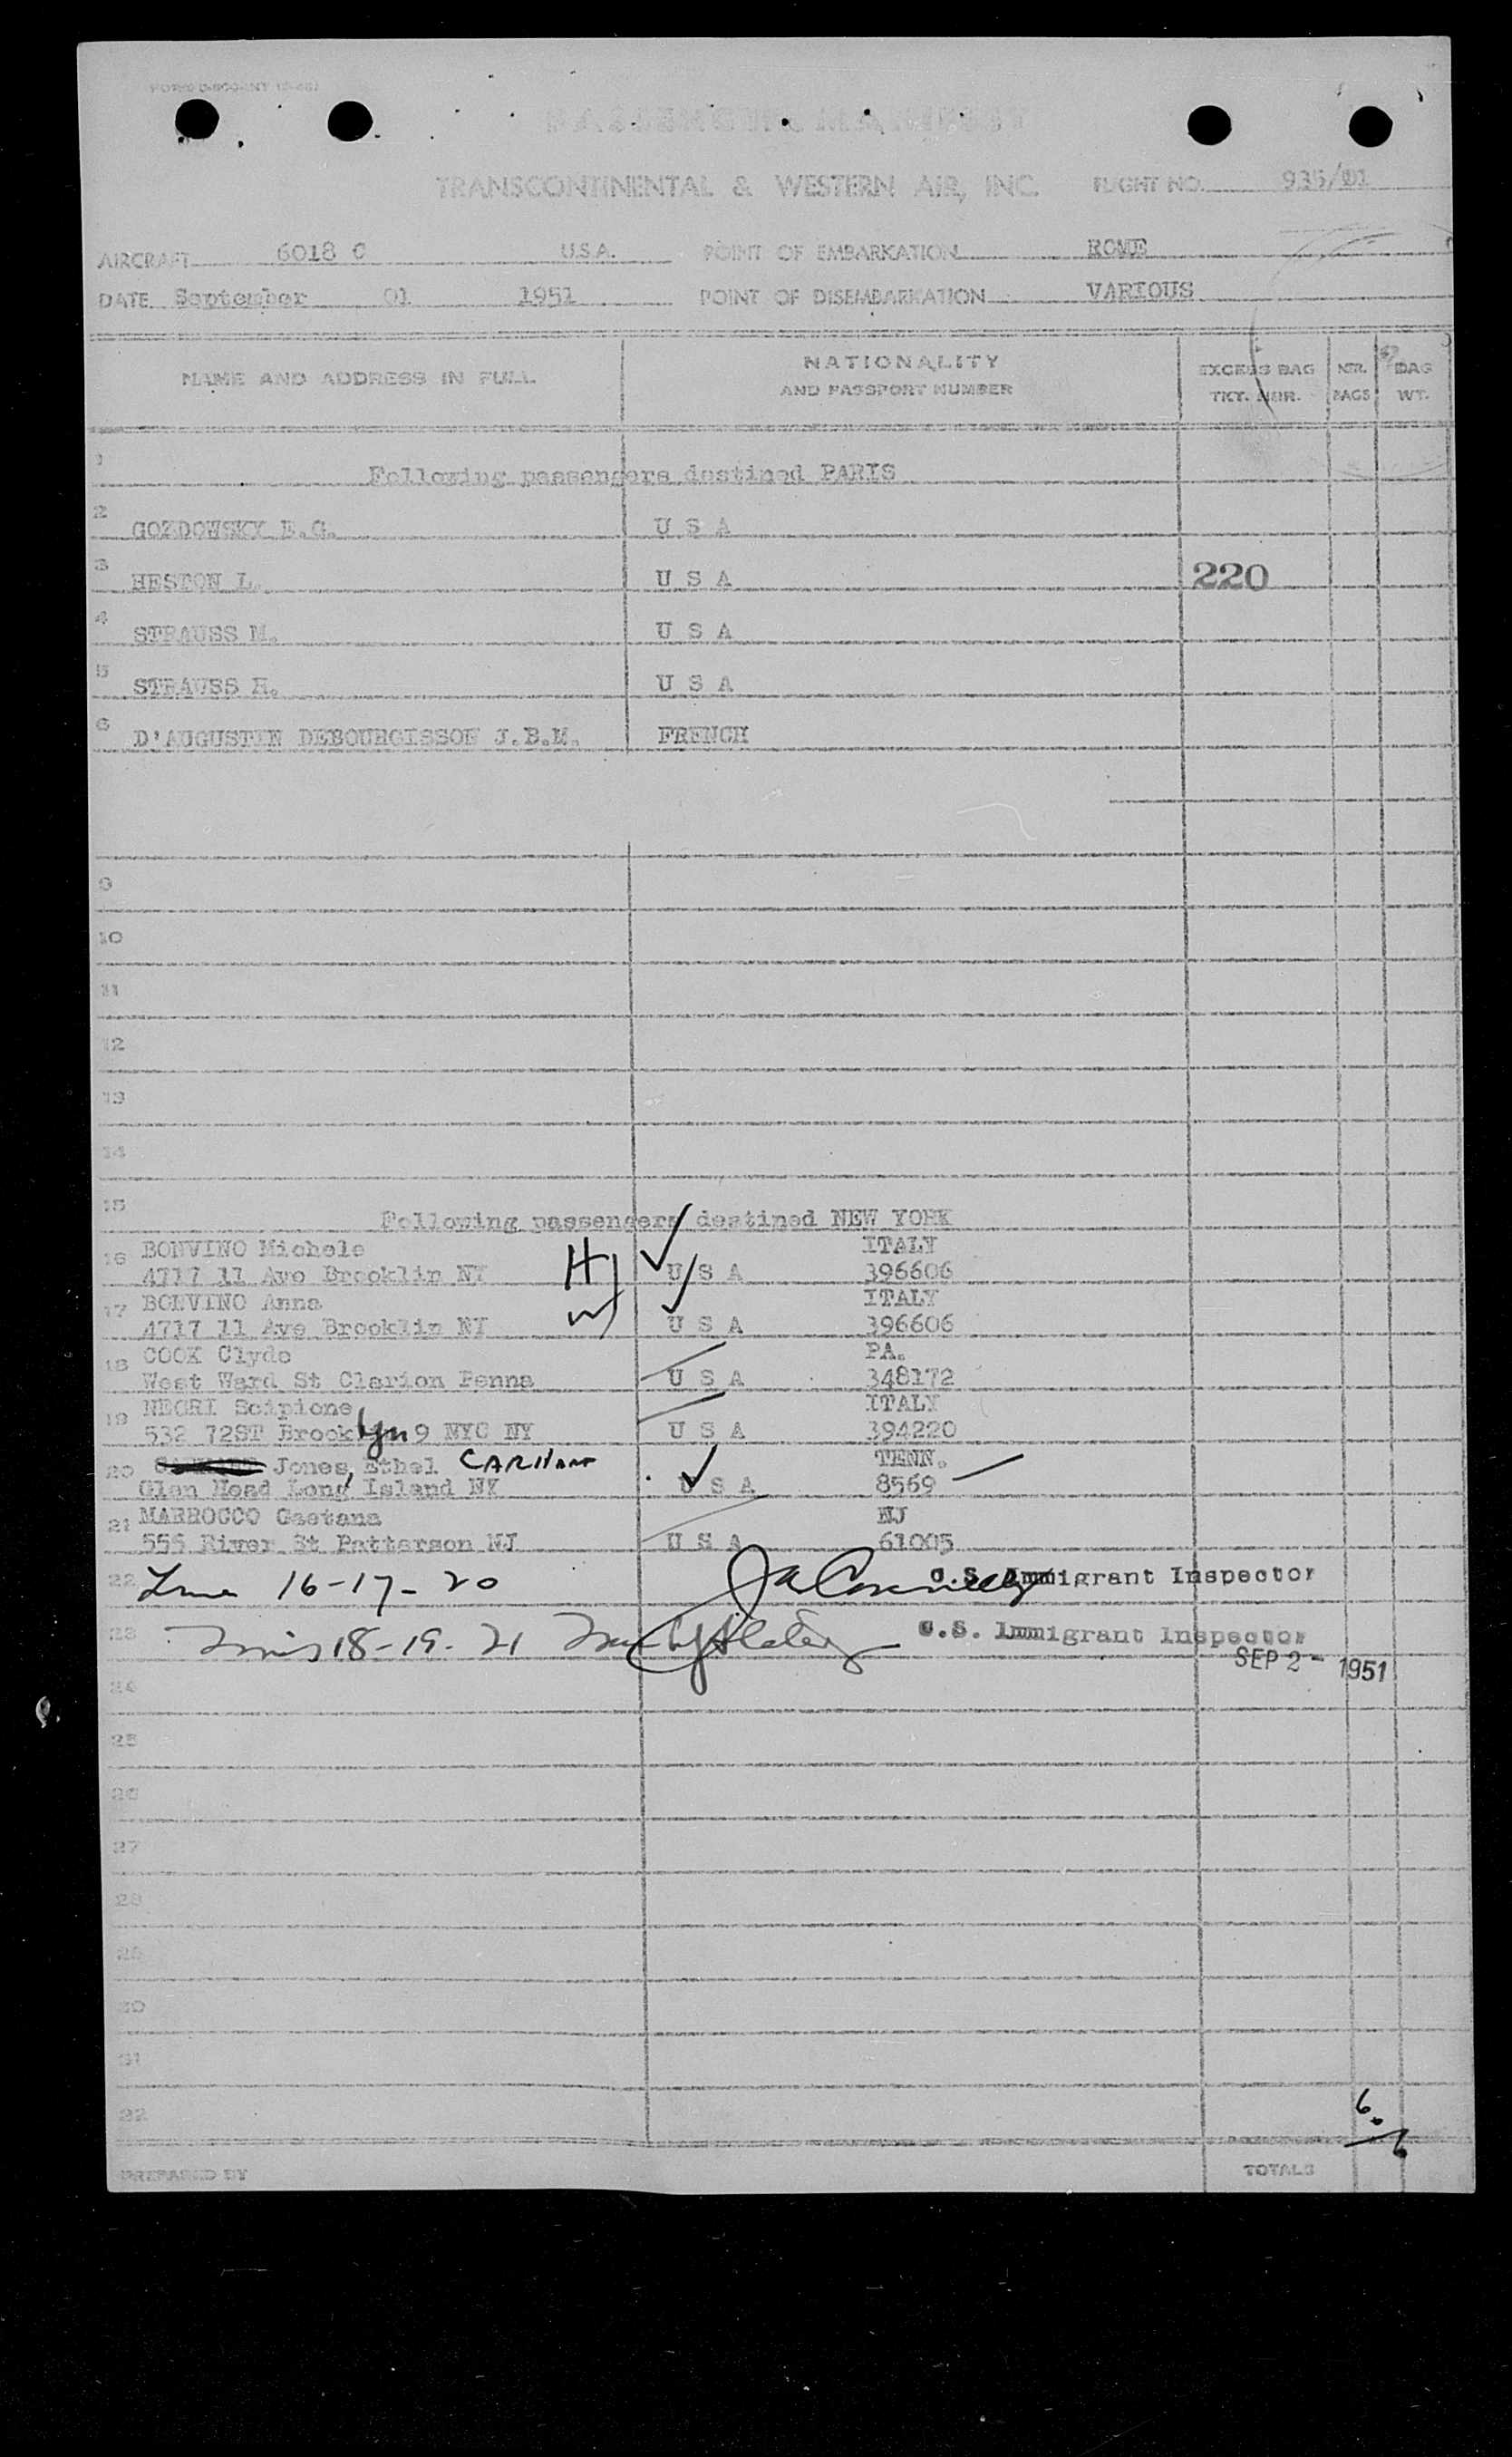 PASSENGER MANIFEST
TRANSCONTINENTAL & WESTERN AIR, INC. FLIGHT NO. 935/01
AIRCRAFT 6018 C U.S.A. POINT OF EMBARKATION ROME
DATE September 01 1951 POINT OF DISEMBARKATION VARIOUS
NAME AND ADDRESS IN FULL NATIONALITY AND PASSPORT NUMBER EXCESS BAG TKT. NBR. NBR. BAGS BAG WT.
1 Following passengers destined PARIS
2 GOZDOWSKY E.G. U S A
3 HESTON L. U S A 220
4 STRAUSS M. U S A
5 STRAUSS H. U S A
6 D'AUGUSTIN DEBOURGISSON J.B.M. FRENCH
9
10
11
12
13
14
15 Following passengers destined NEW YORK
16 BONVINO Michele ITALY
4717 11 Ave Brooklin NY H U S A 396606
17 BONVINO Anna ITALY
4717 11 Ave Brooklin NY W U S A 396606
18 COOK Clyde PA.
West Ward St Clarion Penna U S A 348172
19 NEGRI Scipione ITALY
532 72ST Brooklyn 9 NYC NY U S A 394220
20 Jones, Ethel TENN.
Glen Head Long Island NY U S A 8569
21 MARROCCO Gaetana NJ
556 River St Patterson NJ U S A 61005
22 16-17-20 U.S. Immigrant Inspector
23 18-19-21 U.S. Immigrant Inspector
SEP 2 - 1951
24
25
26
27
28
29
30
31
32
6
6
PREPARED BY TOTALS